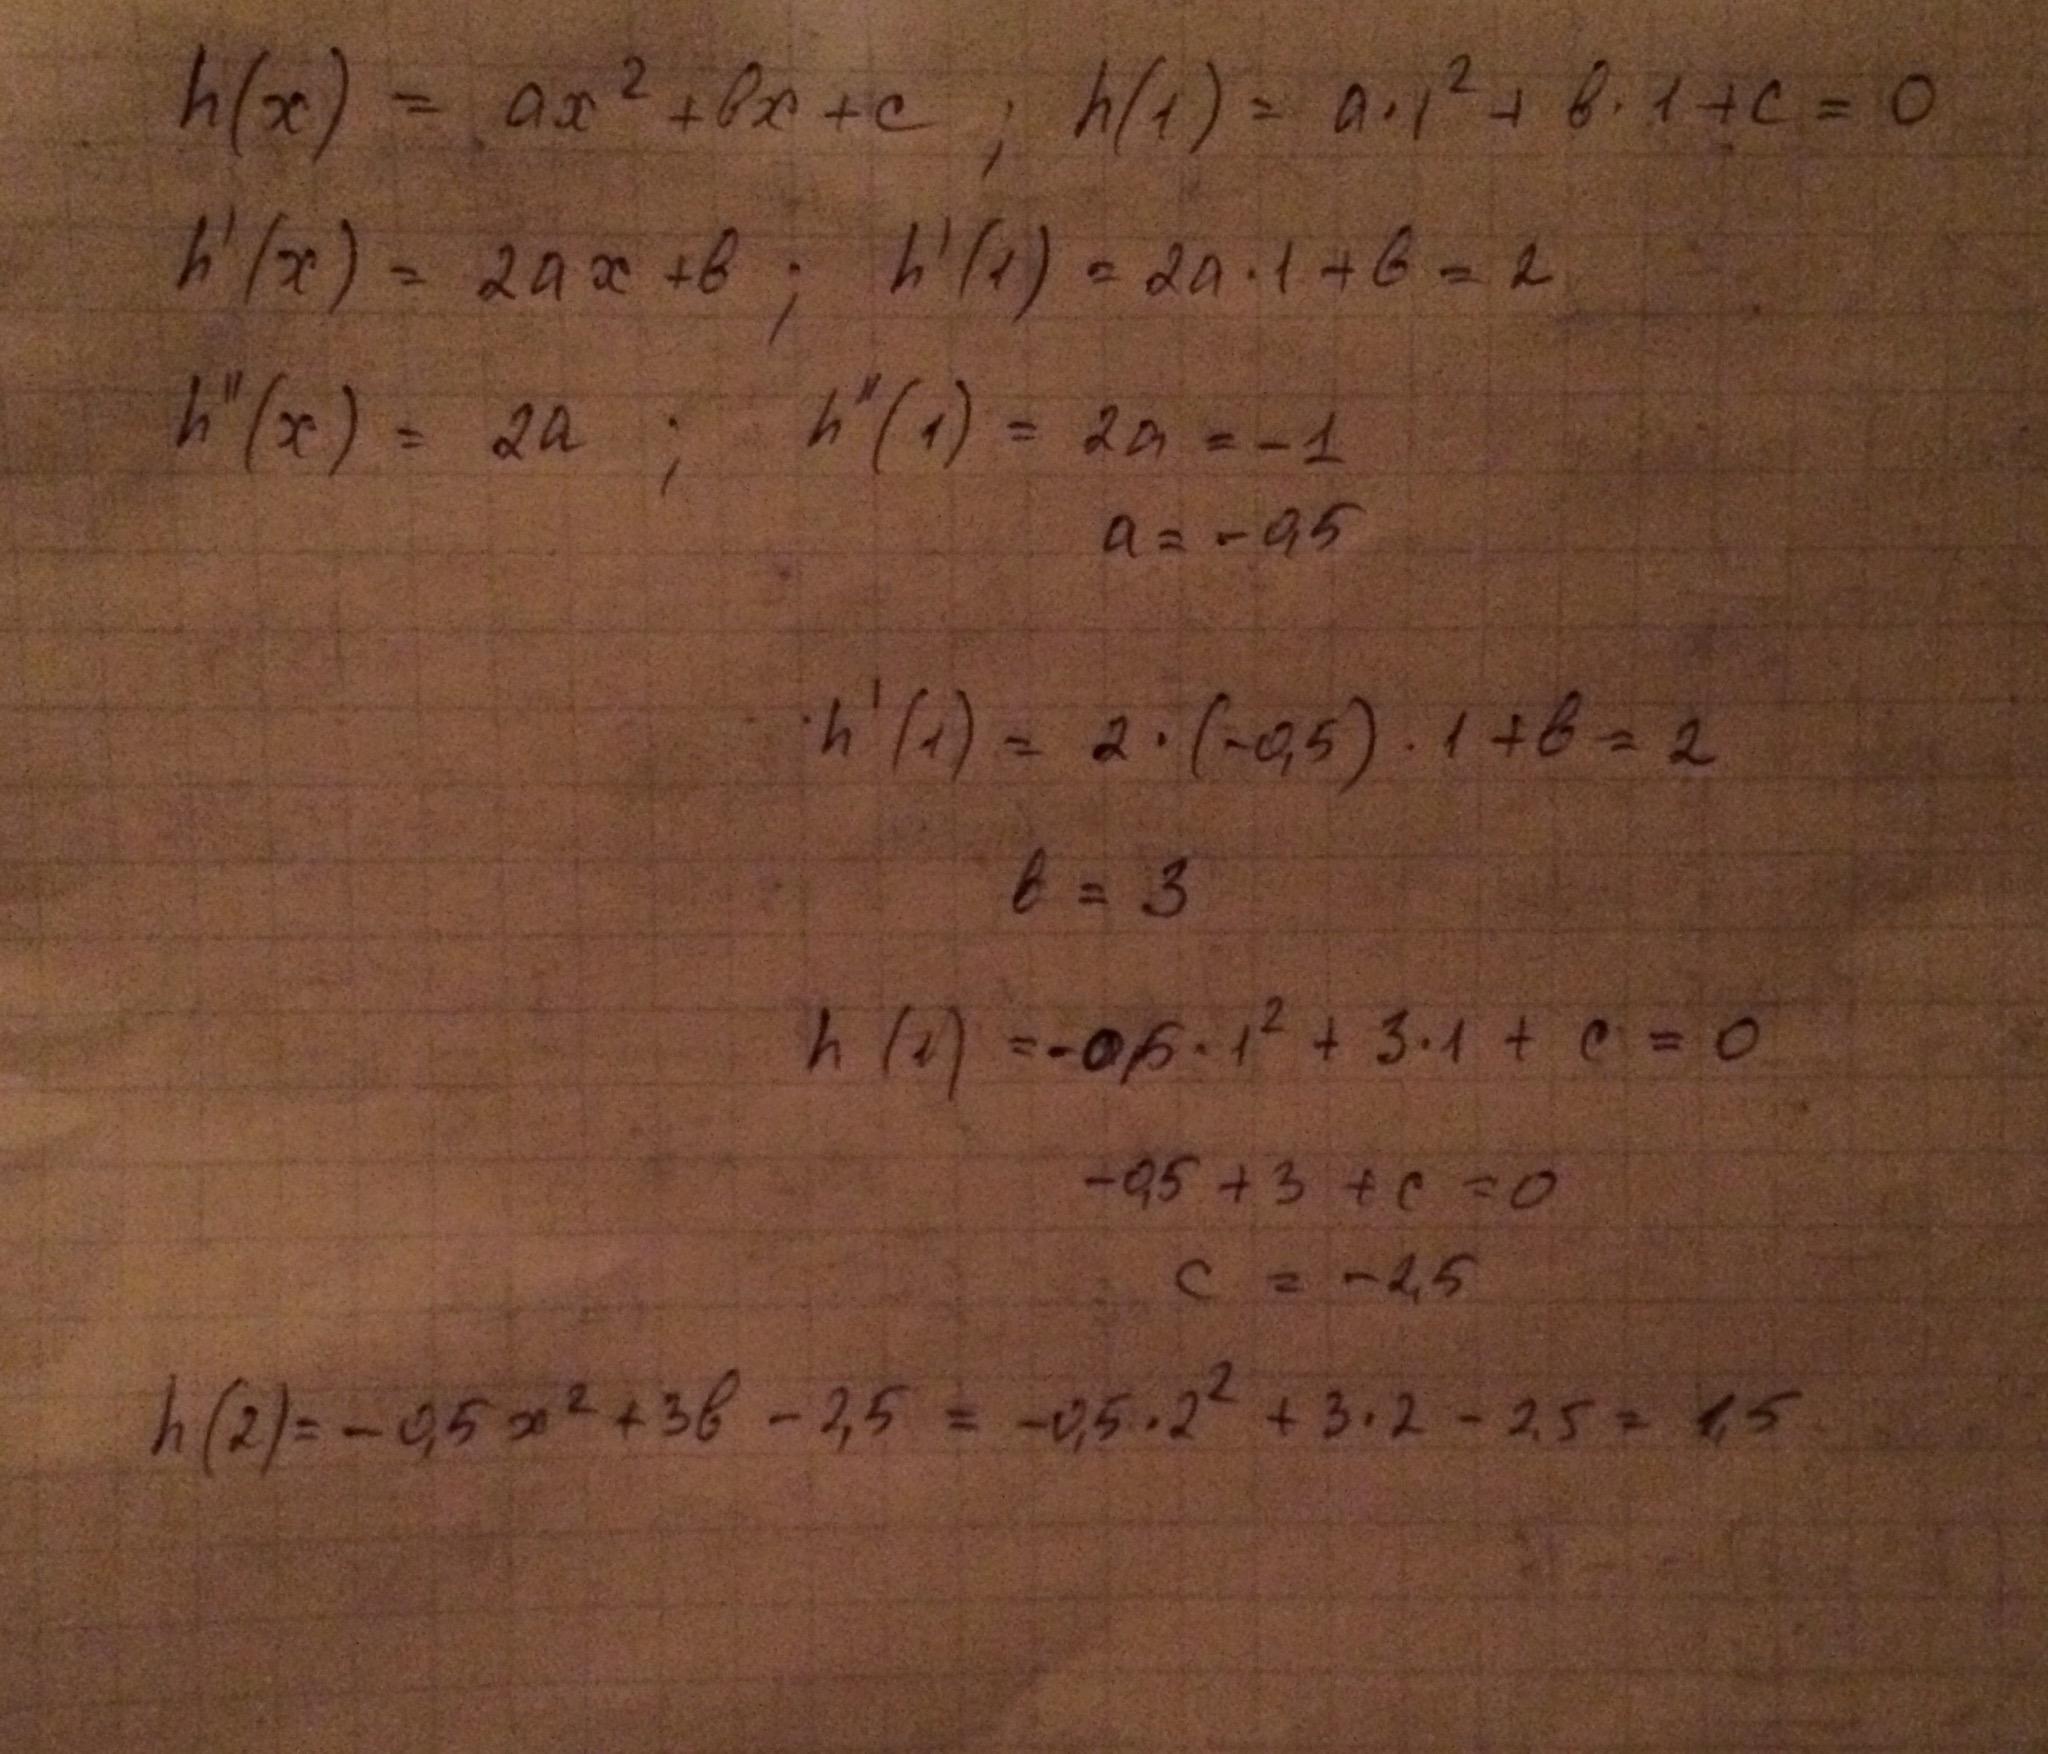 h(x) = ax² + bx + c ; h(1) = a·1² + b·1 + c = 0
h'(x) = 2ax + b ; h'(1) = 2a·1 + b = 2
h"(x) = 2a ; h"(1) = 2a = -1
a = -0,5
h'(1) = 2·(-0,5)·1 + b = 2
b = 3
h(1) = -0,5·1² + 3·1 + c = 0
-0,5 + 3 + c = 0
c = -2,5
h(2) = -0,5x² + 3b - 2,5 = -0,5·2² + 3·2 - 2,5 = 1,5